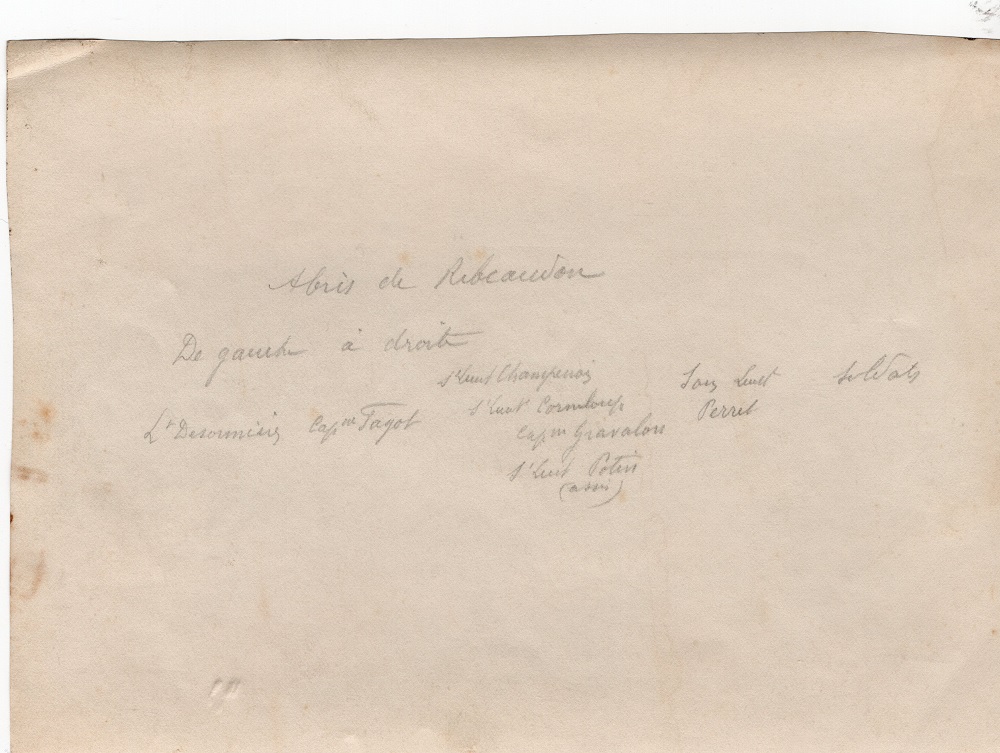 Abris de Ribeaudon
De gauche à droite
s/Lieut Champenois Sous Lieut Soldats
s/Lieut Corneloup Perret
Lt Desormières Capne Fagot Capne Gravalon
s/Lieut Potin
(assis)